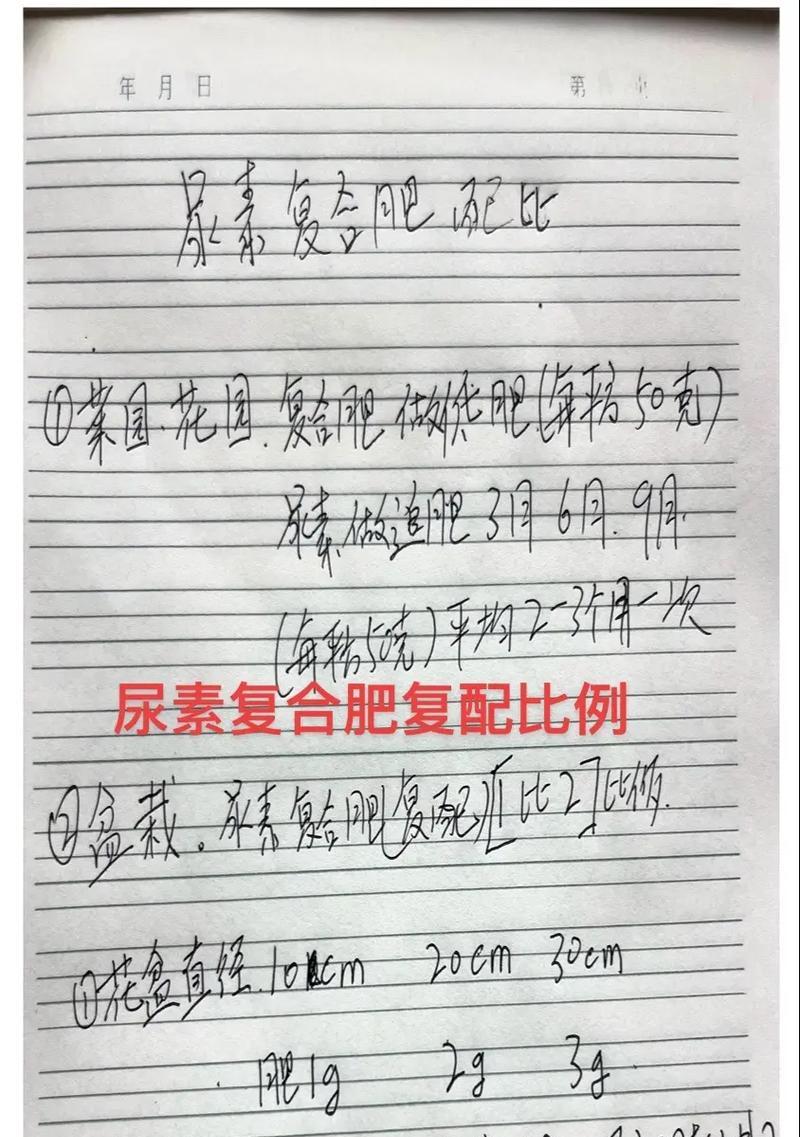 年 月 日 第 页
尿素复合肥 配比
①菜园.花园.复合肥 做底肥(每平方50克)
尿素.做追肥 3月 6月.9月.
(每平方50克)平均2-3个月一次
尿素复合肥复配比例
②盆栽。尿素复合肥(复配)[1比2]比例.
①花盆直径.10cm 20cm 30cm
肥1g 2g 3g